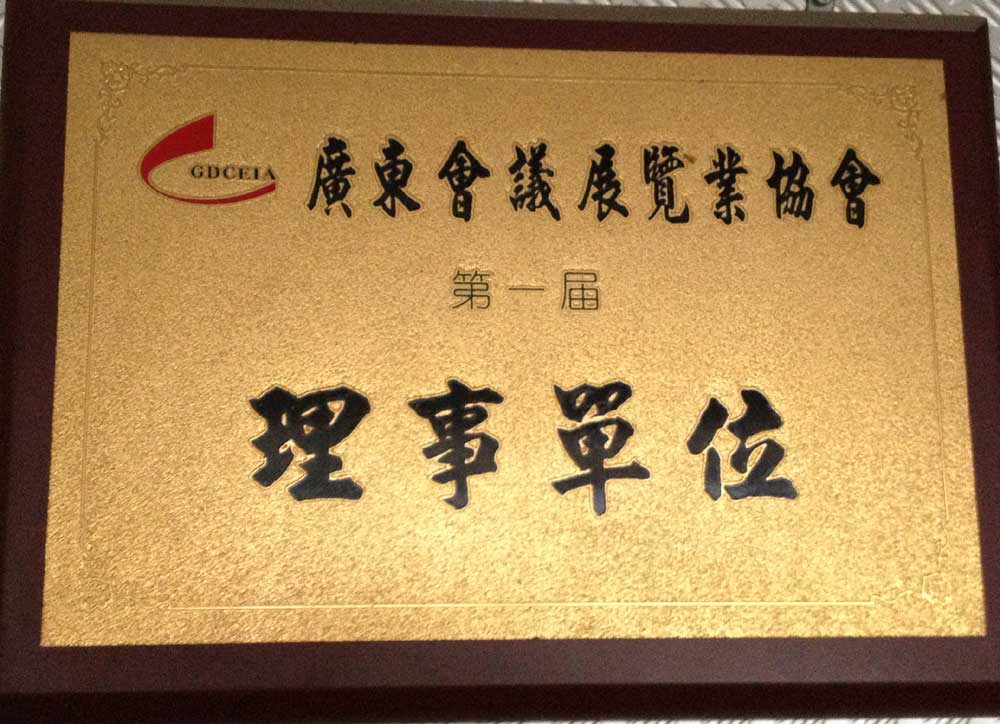 GDCEIA 廣東會議展覽業協會
第一届
理事單位